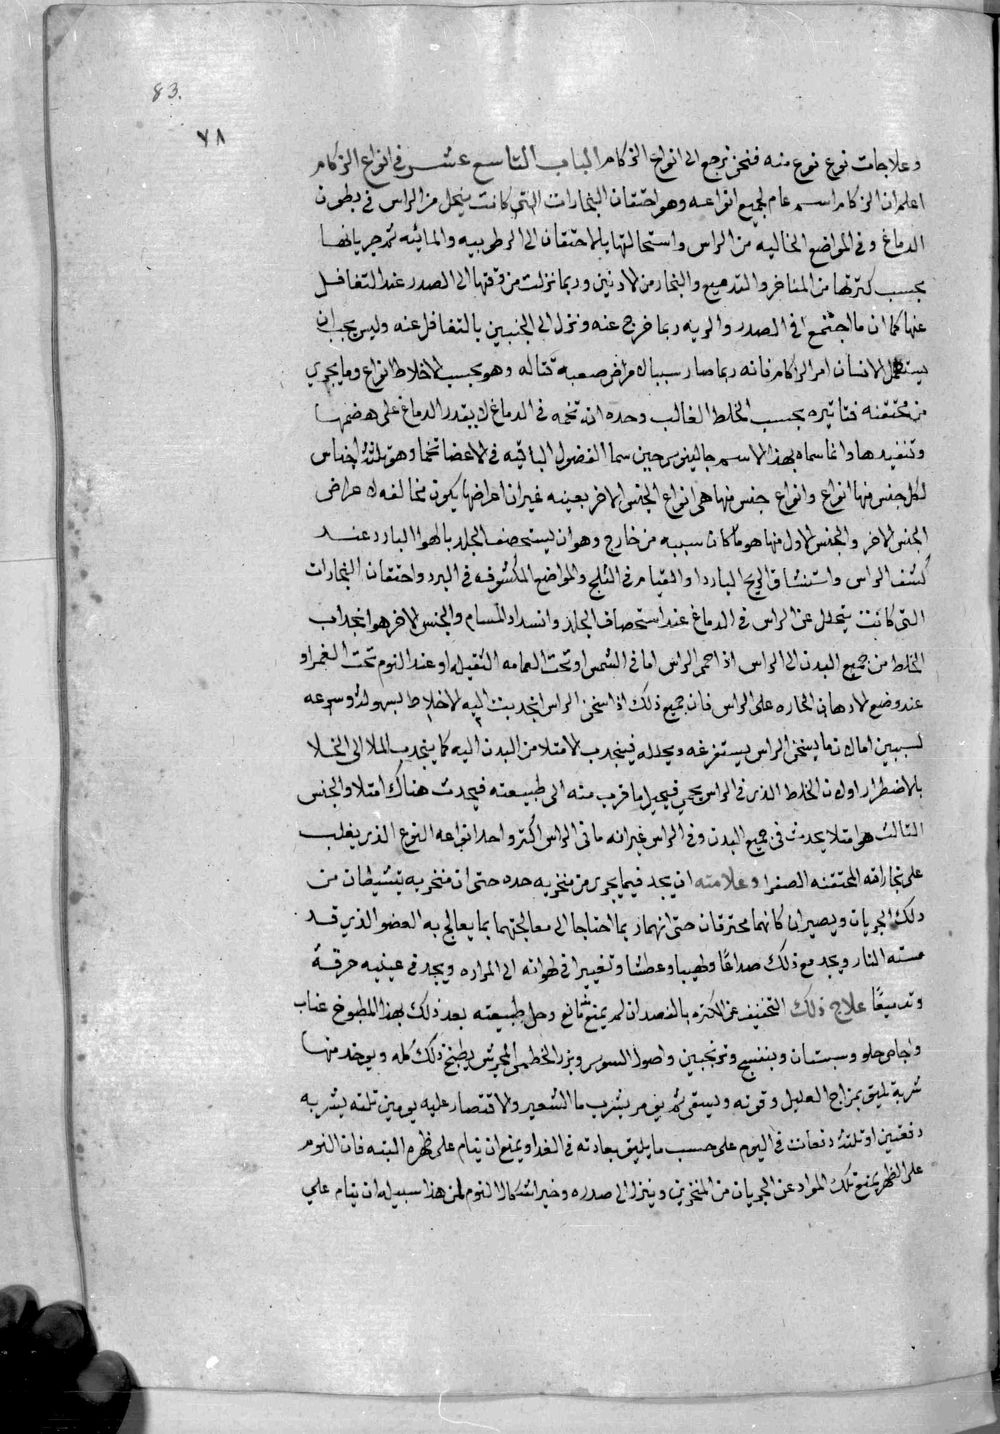 83.
٧٨
وعلاجات نوع نوع منه فنحن نرجع الى انواع الزكام الباب التاسع عشر في انواع الزكام
اعلم ان الزكام اسم عام لجميع انواعه وهو احتقان البخارات التي كانت ينحل من الراس في بطون
الدماغ وفي المواضع الخاليه من الراس واستحالتها بالاحتقان الى الرطوبيه والمائيه ثم جريانها
بحسب كثرتها من المناخر والتدميع والبخار من الاذنين وربما نزلت من وقتها الى الصدر عند التغافل
عنها كما ان ما اجتمع في الصدر والريه ربما خرج عنه ونزل الى الجنبين بالتغافل عنه وليس يجب ان
الانسان امر الزكام فانه ربما صار سببا لامراض صعبة قتاله وهو بحسب الاخلاط انواع وما يجري
من محتقنه فتاثيره بحسب الخلط الغالب وحده انه تخمه في الدماغ لا يقدر الدماغ على هضمها
وتنفيدها وانما سماه بهذا الاسم جالينوس حين سما الفضول الباقيه في الاعضا تخما وهو ثلثة اجناس
لكل جنس منها انواع وانواع جنس منها هي انواع الجنس الاخر بعينه غير ان اعراضها يكون مخالفه لاعراض
الجنس الاخر والجنس الاول منها هو ما كان سببه من خارج وهو ان يستحصف الجلد بالهوا البارد عند
كشف الراس واستنشاق الريح البارد او القيام في الثلج والمواضع المكشوفه في البرد واحتقان البخارات
التي كانت يتحلل عن الراس في الدماغ عند استحصاف الجلد وانسداد المسام والجنس الاخر هو انجذاب
الخلط من جميع البدن الى الراس اذا احمى الراس اما في الشمس او تحت العمامه الثقيله او عند النوم تحت الغمر او
عند وضع الادهان الحاره على الراس فان جميع ذلك اذا اسخن الراس انجذبت اليه الاخلاط بسهولة وسرعه
لسببين اما لان ما يسخن الراس يستفرغه ويحلله فينجذب الامتلا من البدن اليه كما ينجذب الملا الى الخلا
بالاضطرار او لان الخلط الذي في الراس يحمي فيحيل ما قرب منه الى طبيعته فيحدث هناك امتلا والجنس
الثالث هو امتلا يحدث في جميع البدن وفي الراس غير انه ما في الراس اكثر واحد انواعه النوع الذي يغلب
على بخاراته المحتقنه الصفرا وعلامته ان يجد فيما يجري من منخريه حده حتى ان منخريه يتشيطان من
ذلك الجريان ويصيران كانهما محترقان حتى انهما ربما احتاجا الى معالجتهما بما يعالج به العضو الذي قد
مسته النار ويجد مع ذلك صداعًا ولهيبا وعطشا وتغييرا في لهواته الى المراره ويجد في عينيه حرقة
وتدميعًا علاج ذلك التخفيف عن الاكثر بالفصد ان لم يمنع مانع وحل طبيعته بعد ذلك بهذا المطبوخ عناب
واجاص حلو وسبستان وبنفسج وترنجبين واصول السوس وبزر الخطمي المجرش يطبخ ذلك كله ويوخذ منها
شربة تليق بمزاج العليل وقوته ويسقى ثم يومر بشرب ما الشعير والاقتصار عليه يومين ثلثه يشربه
دفعتين او ثلثة دفعات في اليوم على حسب ما يليق بعادته في الغدا ويمنع ان ينام على ظهره البته فان النوم
على الظهر يمنع تلك المواد عن الجريان من المنخرين وينزل الى صدره وخير اشكال النوم لمن هذا سبيله ان ينام على